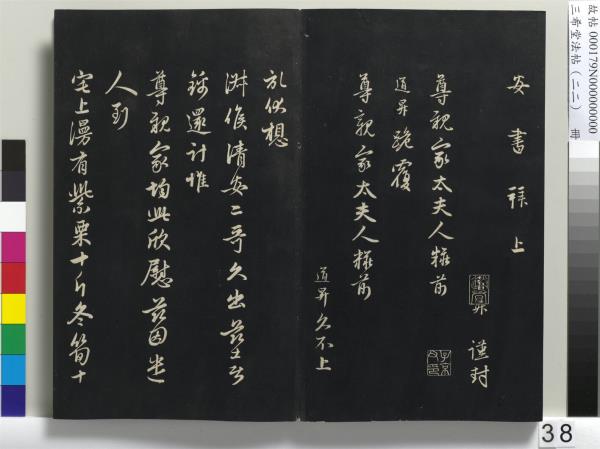 故帖 000179N000000000
三希堂法帖(二二) 冊
安書拜上
尊親家太夫人粧前
昇 謹封
道昇跪覆
尊親家太夫人粧前
道昇久不上
伏想
淑候清安二哥久出茲
還計惟
尊親家均此欣慰茲因遣
人到
宅上漫有紫栗十斤冬筍十
38